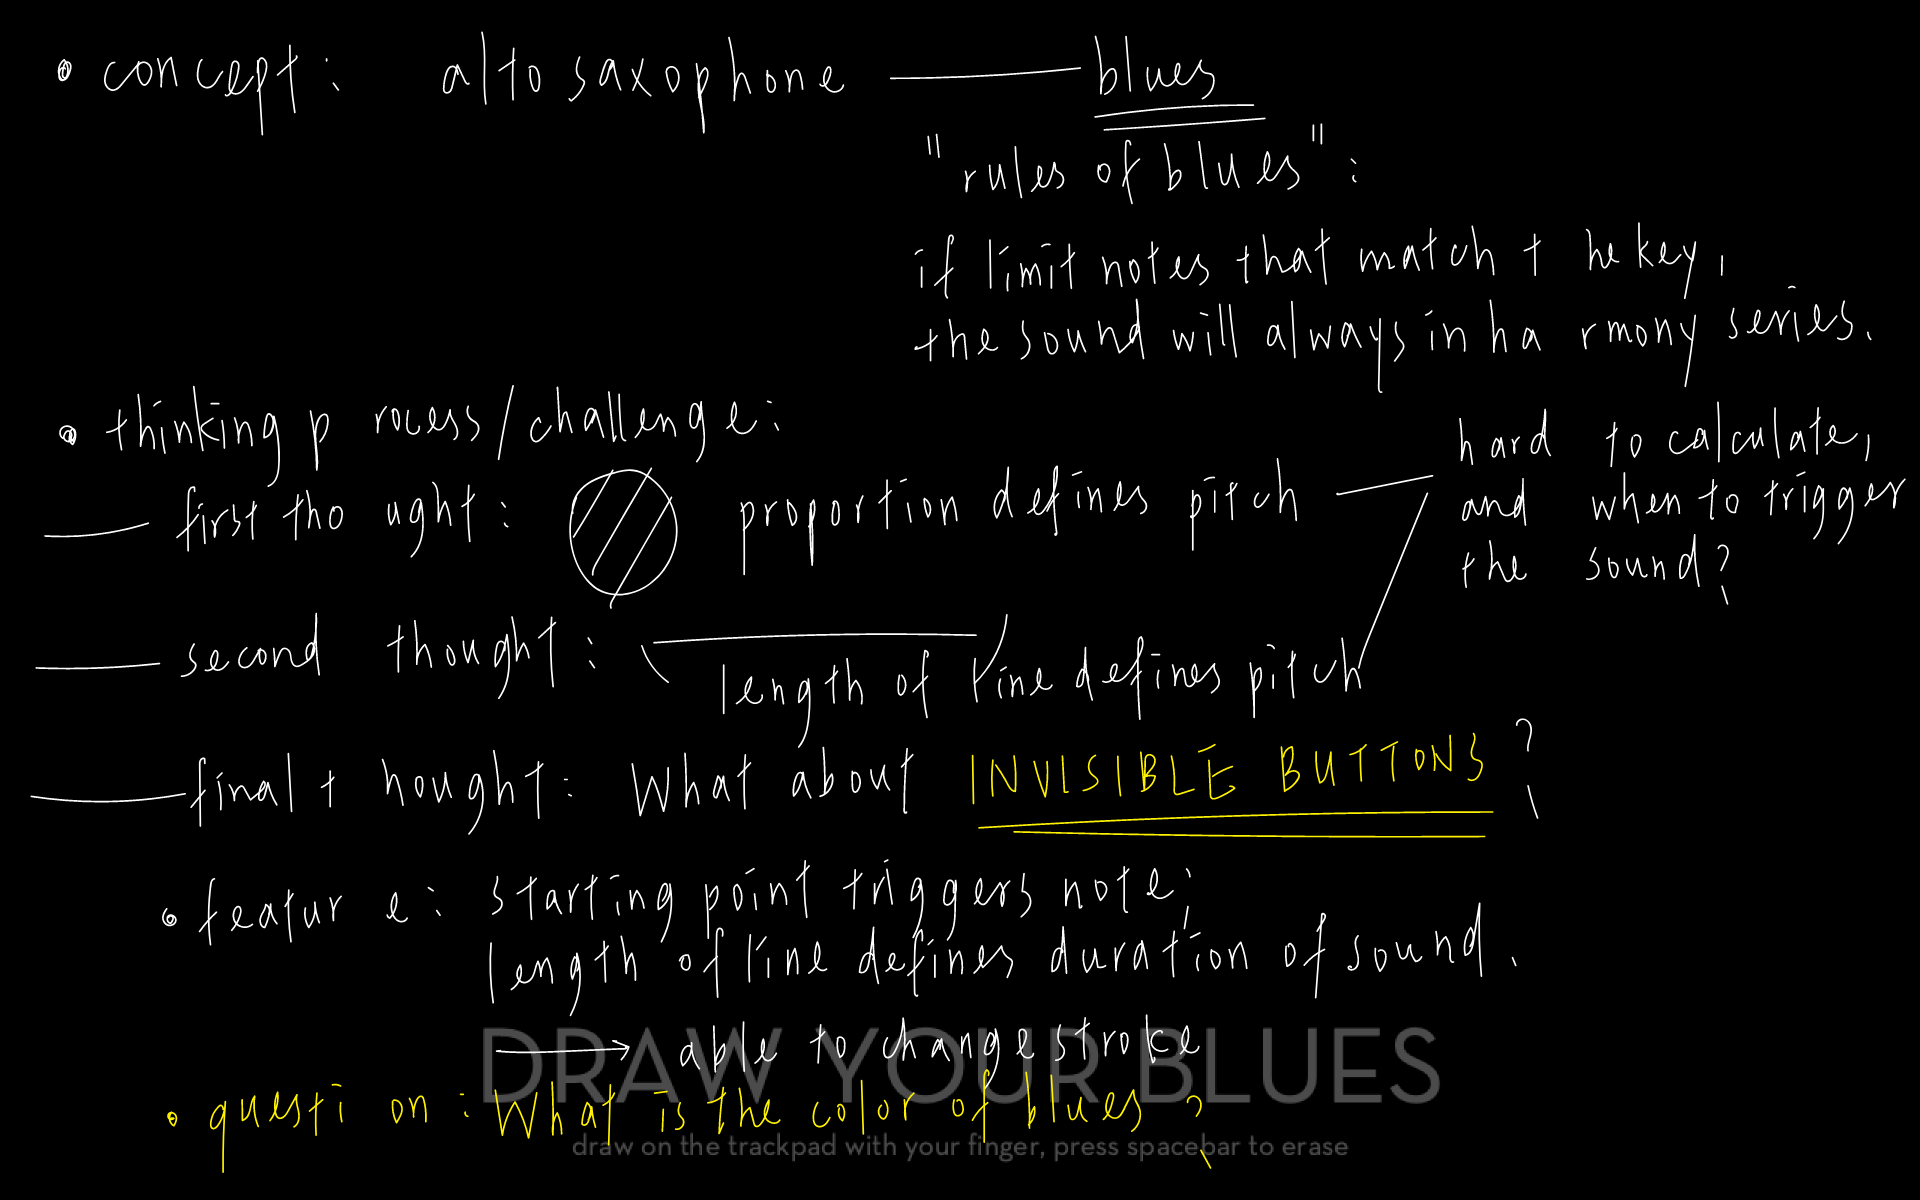 • concept: alto saxophone — blues
"rules of blues":
if limit notes that match the key,
the sound will always in harmony series.
• thinking process/challenge:
— first thought: proportion defines pitch — hard to calculate,
and when to trigger
the sound?
— second thought: length of line defines pitch
— final thought: What about INVISIBLE BUTTONS?
• feature: starting point triggers note;
length of line defines duration of sound.
→ able to change stroke
DRAW YOUR BLUES
• question: What is the color of blues?
draw on the trackpad with your finger, press spacebar to erase